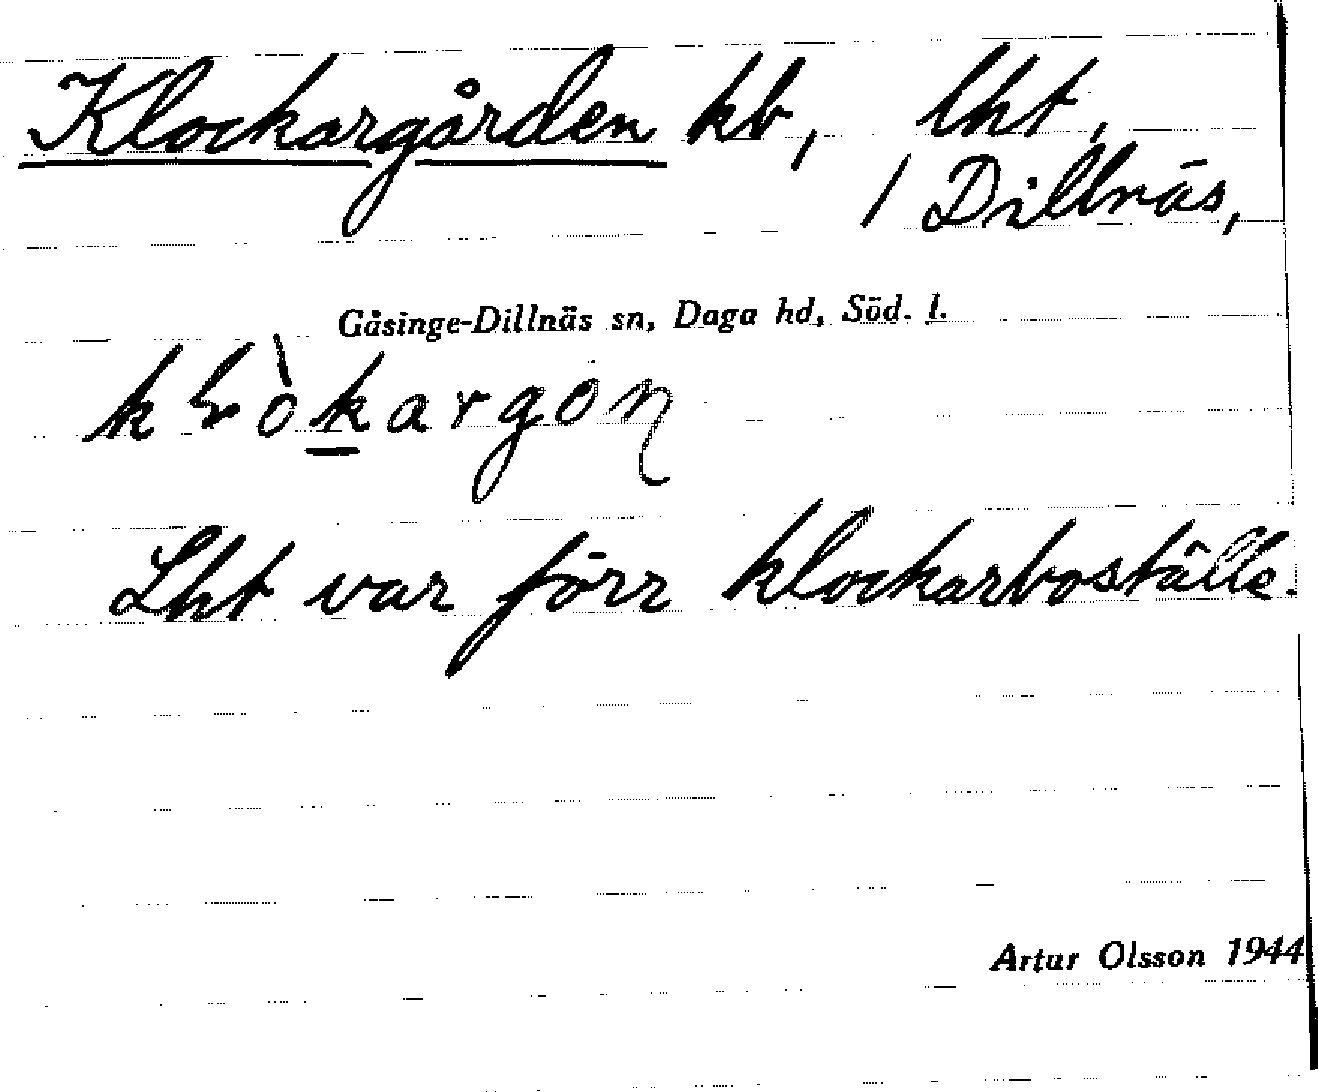 Klockargården kb, lht,
/ Dillnäs,
Gåsinge-Dillnäs sn, Daga hd, Söd. l.
Lht var förr klockarboställe.
Artur Olsson 1944